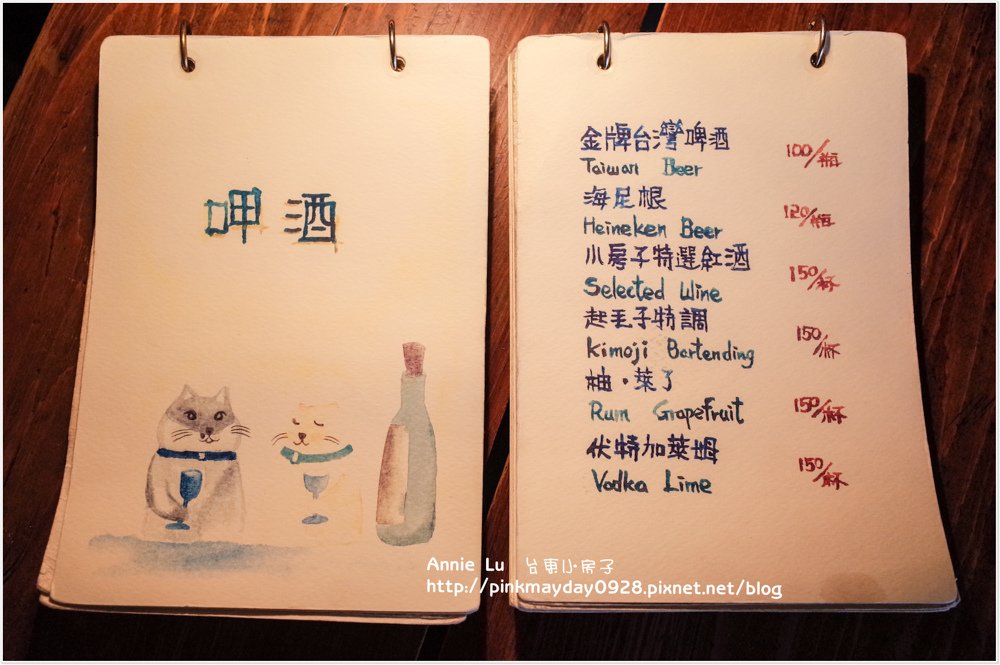 呷酒
金牌台灣啤酒
100/瓶
Taiwan Beer
海尼根
120/瓶
Heineken Beer
小房子特選紅酒
150/杯
Selected Wine
起毛子特調
150/杯
Kimoji Bartending
柚·萊了
150/杯
Rum Grapefruit
伏特加萊姆
150/杯
Vodka Lime
Annie Lu 台東小房子
http://pinkmayday0928.pixnet.net/blog